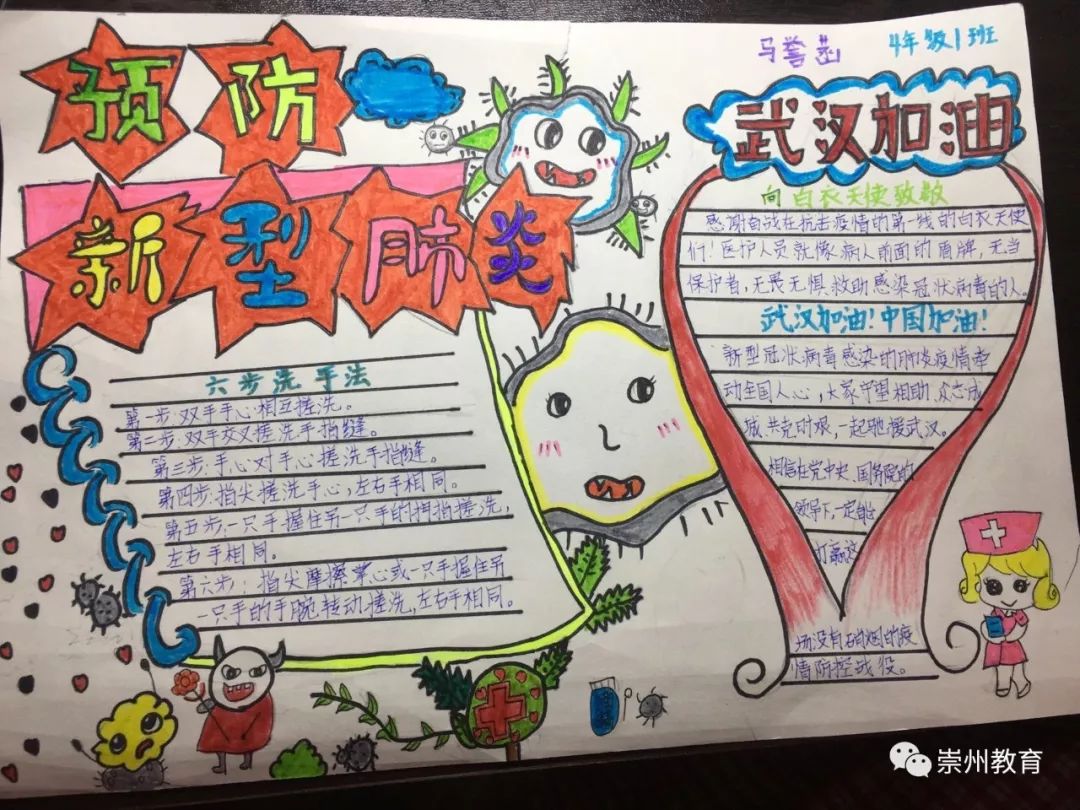 预防
新型肺炎
马誉函
4年级1班
六步洗手法
第一步:双手手心相互搓洗。
第二步:双手交叉搓洗手指缝。
第三步:手心对手心搓洗手指缝。
第四步:指尖搓洗手心,左右手相同。
第五步,一只手握住另一只手的拇指搓洗,
左右手相同。
第六步:指尖摩擦掌心或一只手握住另
一只手的手腕转动搓洗,左右手相同。
武汉加油
向白衣天使致敬
感谢奋战在抗击疫情的第一线的白衣天使
们!医护人员就像病人前面的盾牌,无当
保护者,无畏无惧救助感染冠状病毒的人。
武汉加油!中国加油!
新型冠状病毒感染的肺炎疫情牵
动全国人心,大家守望相助、众志成
城,共克时艰,一起驰援武汉。
相信在党中央、国务院的
领导下,一定能
打赢这
场没有硝烟的疫
情防控战役。
崇州教育